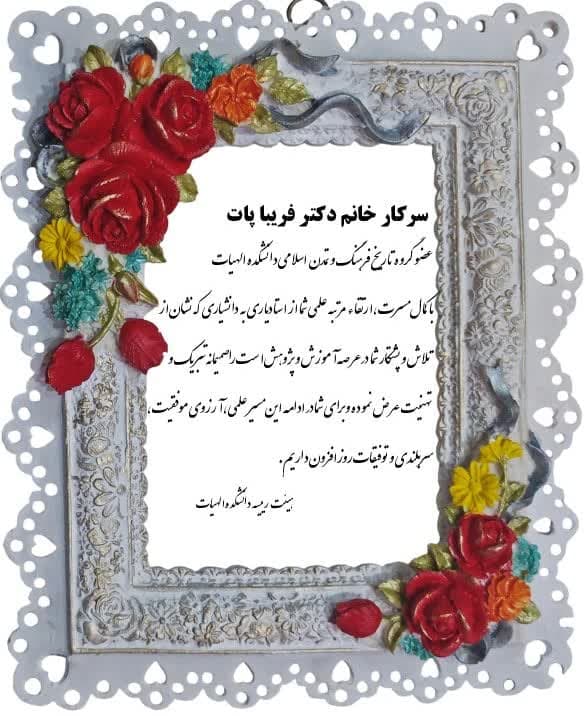 سرکار خانم دکتر فریبا پات
عضو گروه تاریخ فرهنگ و تمدن اسلامی دانشکده الهیات
با کمال مسرت، ارتقاء مرتبه علمی شما از استادیاری به دانشیاری که نشان از
تلاش و پشتکار شما در عرصه آموزش و پژوهش است را صمیمانه تبریک و
تهنیت عرض نموده و برای شما در ادامه این مسیر علمی، آرزوی موفقیت،
سربلندی و توفیقات روزافزون داریم.
هیئت رییسه دانشکده الهیات